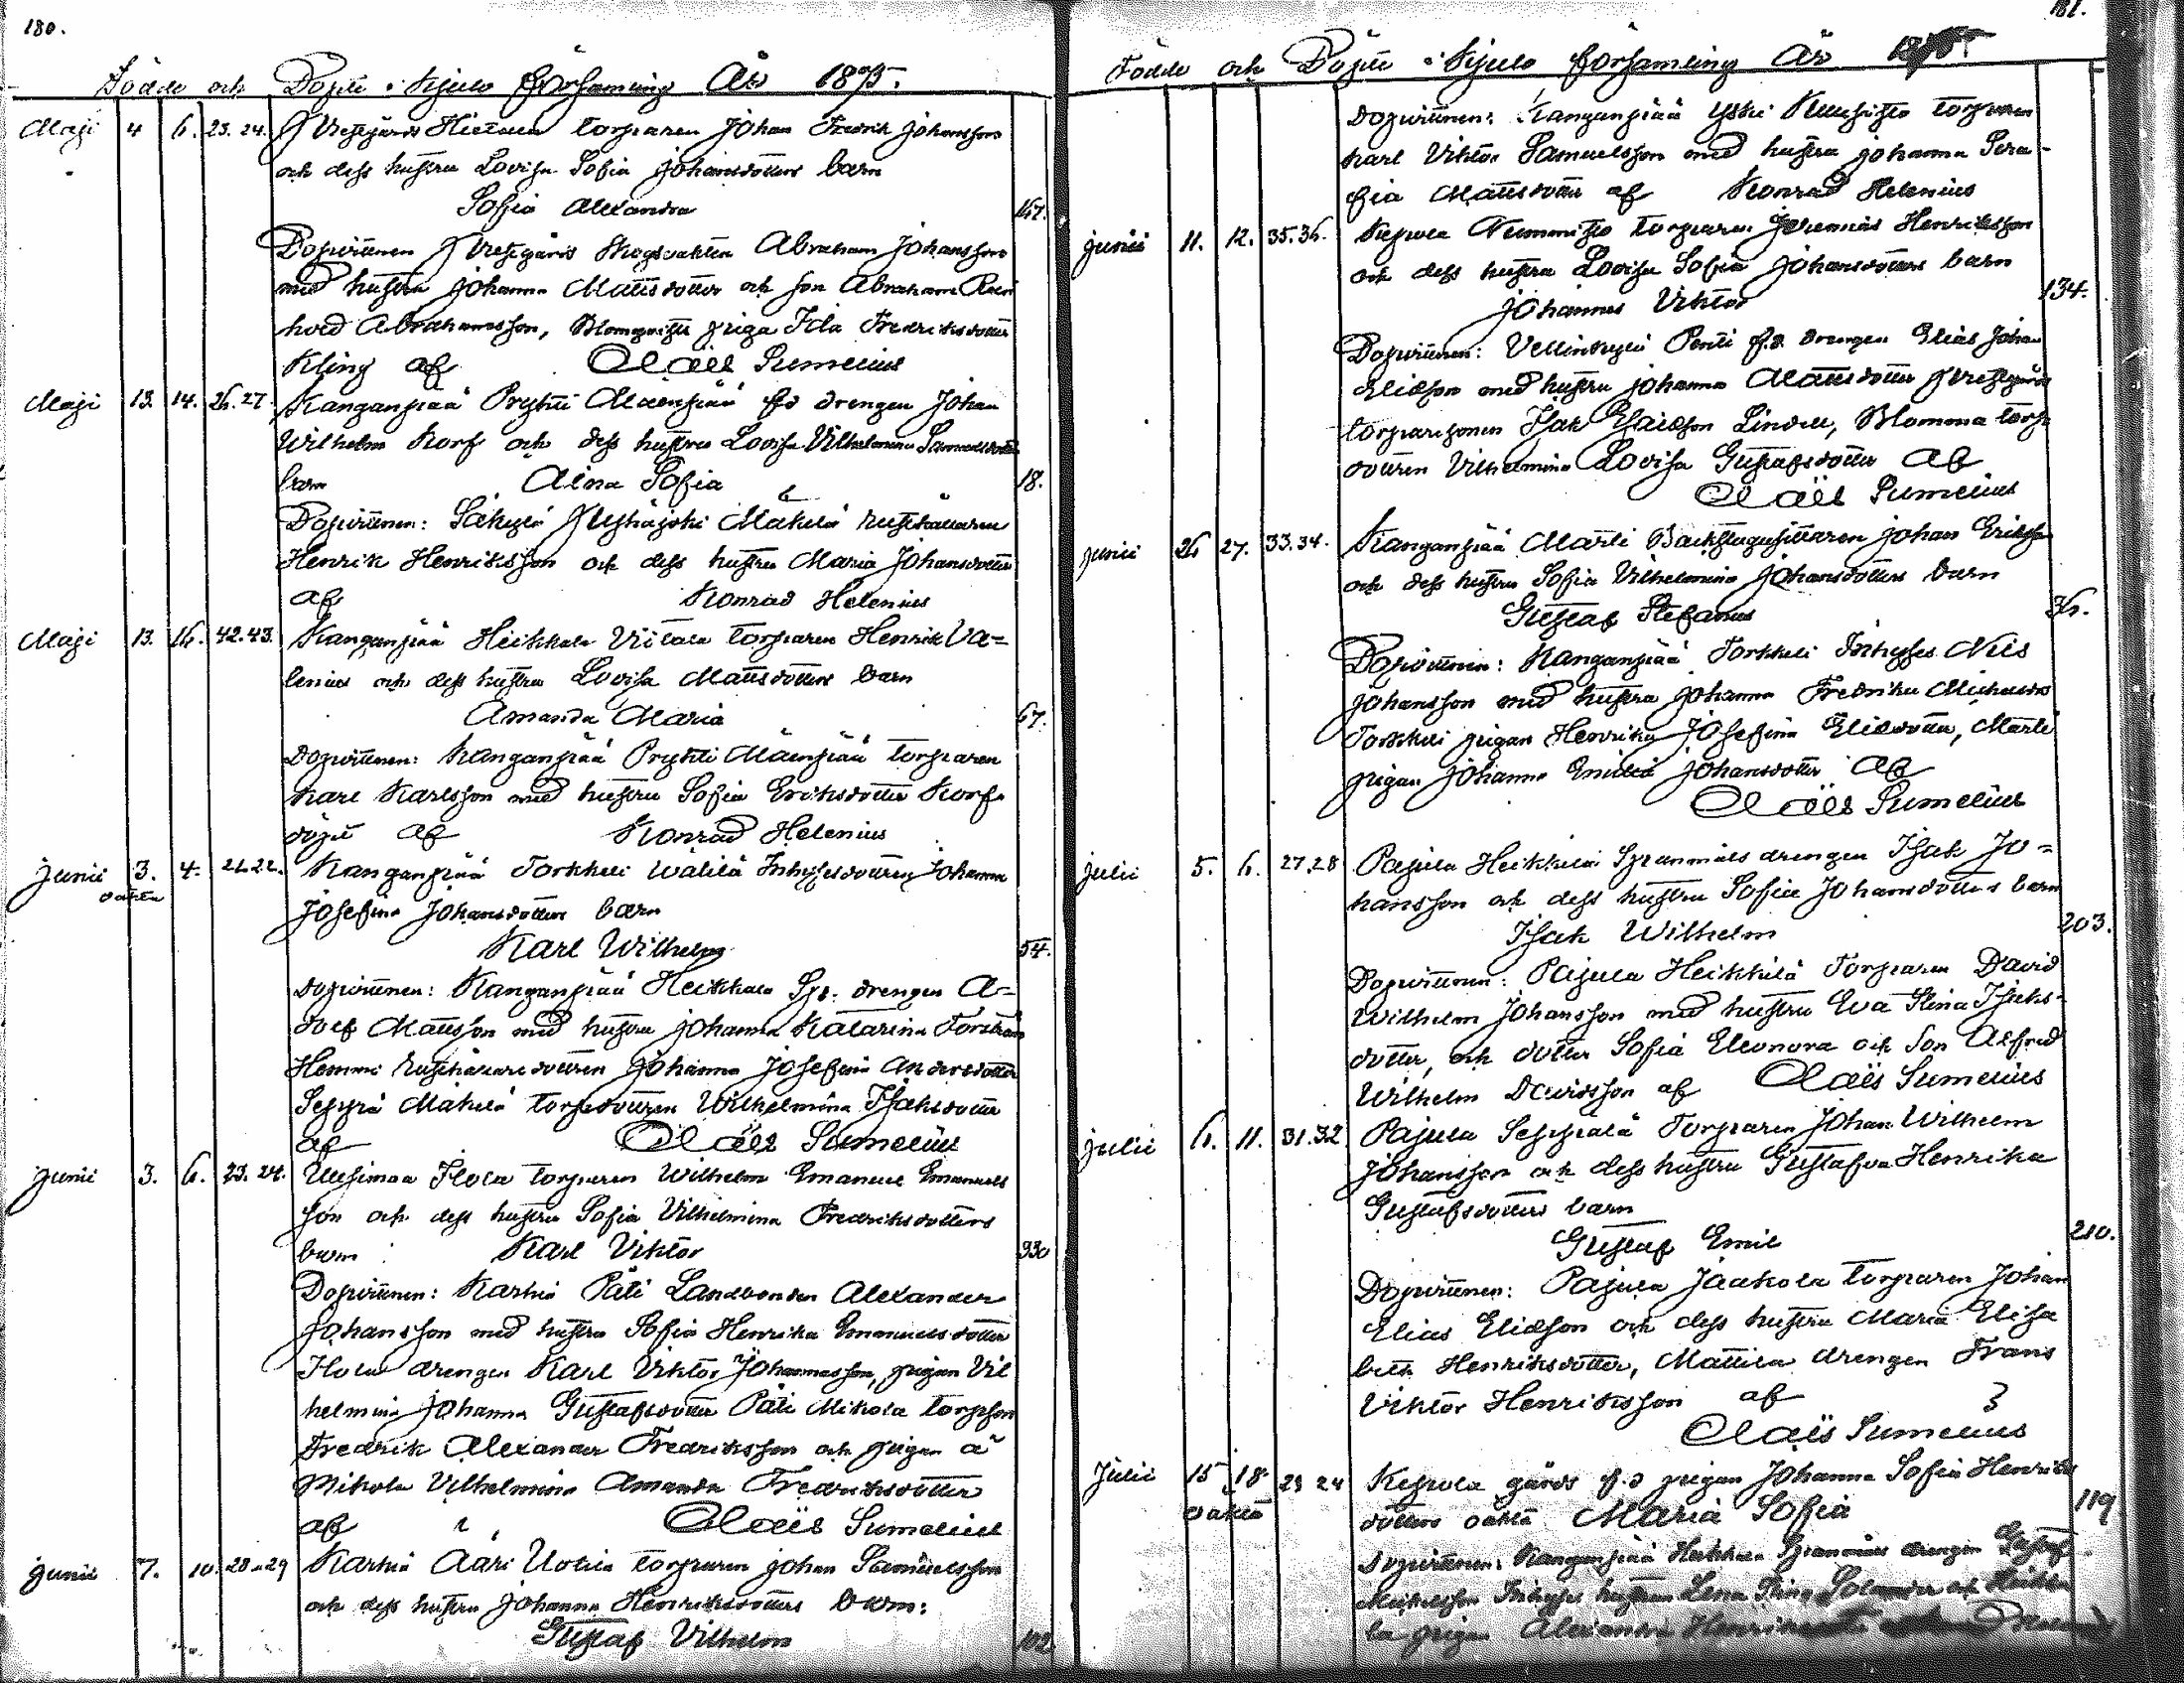 180.
Födde och Döpte i Kjulo församling År 1875.
Maji 4 6. 23. 24. Vrejgårds Hietanen torparen Johan Fredrik Johansson
och dess hustru Lovisa Sofia Johansdotters barn
Sofia Alexandra 167.
Dopvittnen Vrejgårds Skogsvakten Abraham Johansson
med hustru Johanna Mattsdotter och son Abraham
Abrahamsson, piga Ida Fredriksdotter
Kling af Claës Sumelius
Maji 13. 14. 26. 27. Kanganpää Prykti Mäenpää fd drengen Johan
Wilhelm Korf och dess hustru Lovisa Vilhelmina Samuelsdotters
barn Aina Sofia 18.
Dopvittnen: Säkylä Mäkelä rusthållaren
Henrik Henriksson och dess hustru Maria Johansdotter
af Konrad Helenius
Maji 13. 16. 42. 43. Kanganpää Heikkala Vitala torparen Henrik Va=
lenius och dess hustru Lovisa Mattsdotters barn
Amanda Maria 67.
Dopvittnen: Kanganpää Prykti Mäenpää torparen
Karl Karlsson med hustru Sofia Eriksdotter Korf
döpt af Konrad Helenius
Junii 3. 4. 21. 22. Kanganpää Torkkeli Wälilä Inhysesdottren Johanna
oäkta
Josefina Johansdotters barn
Karl Wilhelm 54.
Dopvittnen: Kanganpää Heikkala Sp. drengen A=
dolf Mattsson med hustru Johanna Katarina Forsman
Hemmi rusthållaredottren Johanna Josefina Andersdotter
Seppä Mäkelä torpdottren Wilhelmina Isaksdotter
af Claës Sumelius
Junii 3. 6. 23. 24. Uusimaa Ilola torparen Wilhelm Emanuel Emanuels
son och dess hustru Sofia Vilhelmina Fredriksdotters
barn Karl Viktor 330
Dopvittnen: Karhia Päti Landbonden Alexander
Johansson med hustru Sofia Henrika Emanuelsdotter
Ilola drengen Karl Viktor Johannesson, pigan Vil
helmina Johanna Gustafsdotter Päti Mikola torpson
Fredrik Alexander Fredriksson och pigan a
Mikola Vilhelmina Amanda Fredriksdotter
af Claës Sumelius
Junii 7. 10. 28. 29 Karhia Ääri Uotila torparen Johan Samuelsson
och dess hustru Johanna Henriksdotters barn:
Gustaf Vilhelm 102.
181.
Födde och Döpte i Kjulo församling År 1875
Dopvittnen: Kanganpää Yski torparen
Karl Viktor Samuelsson med hustru Johanna Sera-
fia Mattsdotter af Konrad Helenius
Junii 11. 12. 35. 36. Kepola Nummisto torparen Jeremias Henriksson
och dess hustru Lovisa Sofia Johansdotters barn
Johannes Viktor 134.
Dopvittnen: Vellinkylä Pentti f.d. drengen Elias Johan
Eliasson med hustru Johanna Mattsdotter Vrejgårds
torparesonen Isak Lindell, Blomma torp
dottren Vilhelmina Lovisa Gustafsdotter af
Claës Sumelius
Junii 26 27. 33. 34. Kanganpää Martti Backstugusittaren Johan Eriksson
och dess hustru Sofia Vilhelmina Johansdotters barn
Gustaf Stefanus 36.
Dopvittnen: Kanganpää Torkkeli Inhyses Nils
Johansson med hustru Johanna Fredrika Michelsd
Torkkeli pigan Henrika Josefina Eliasdotter, Martti
pigan Johanna Emilia Johansdotter af
Claës Sumelius
Julii 5. 6. 27. 28 Pajula Heikkilä Spanmåls drengen Isak Jo=
hansson och dess hustru Sofia Johansdotters barn
Isak Wilhelm 203.
Dopvittnen: Pajula Heikkilä Torparen David
Wilhelm Johansson med hustru Eva Stina Isaks-
dotter, och dotter Sofia Eleonora och son Alfred
Wilhelm Davidsson af Claës Sumelius
Julii 6. 11. 31. 32 Pajula Seppälä Torparen Johan Wilhelm
Johansson och dess hustru Gustafva Henrika
Gustafsdotters barn
Gustaf Emil 210.
Dopvittnen: Pajula Jaakola torparen Johan
Elias Eliasson och dess hustru Maria Elisa
beth Henriksdotter, Mattila drengen Frans
Viktor Henriksson af
Claës Sumelius
Julii 15 18. 23 24 Kepola gårds f.d pigan Johanna Sofia Henriks
oäkta
dotters oäkta Maria Sofia 119
Dopvittnen: Kanganpää Heikkala Spanmåls drengen Gustaf
Michelsson Inhyses hustrun Lena Stina Solander och Heikka
la pigan Alexandra